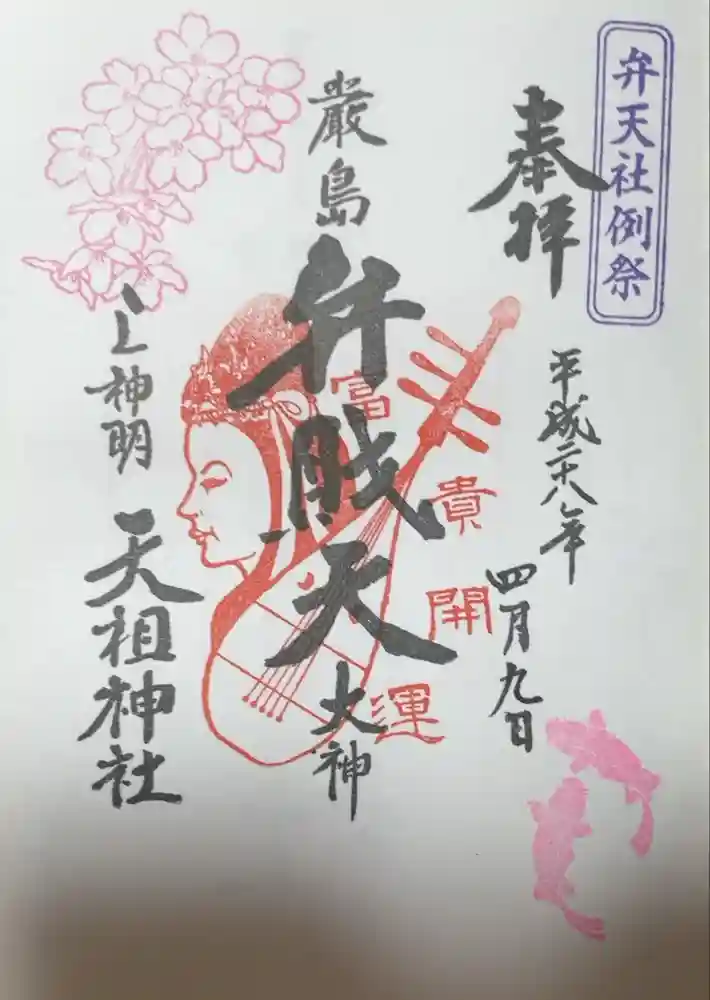 弁天社例祭
奉拝
平成二十八年
四月九日
富貴開運
厳島
弁財天
大神
上神明
天祖神社